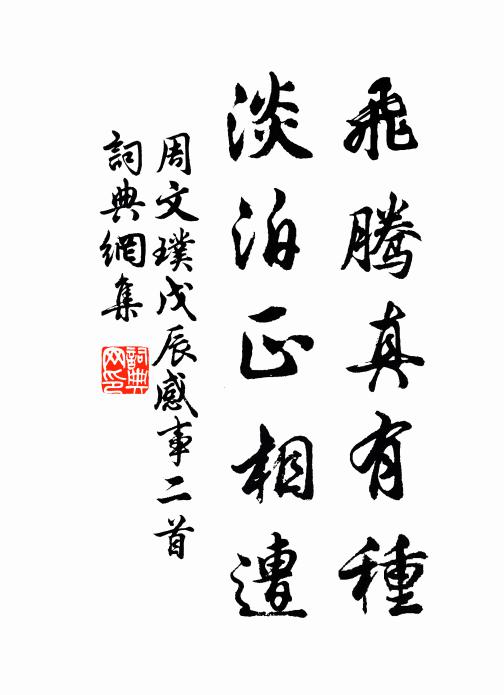 飛騰真有種
淡泊正相遭
周文璞戊辰感事二首
詞典網集
詞典網印